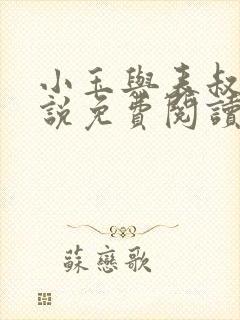 小玉與表叔
說免費閱讀
蘇戀歌